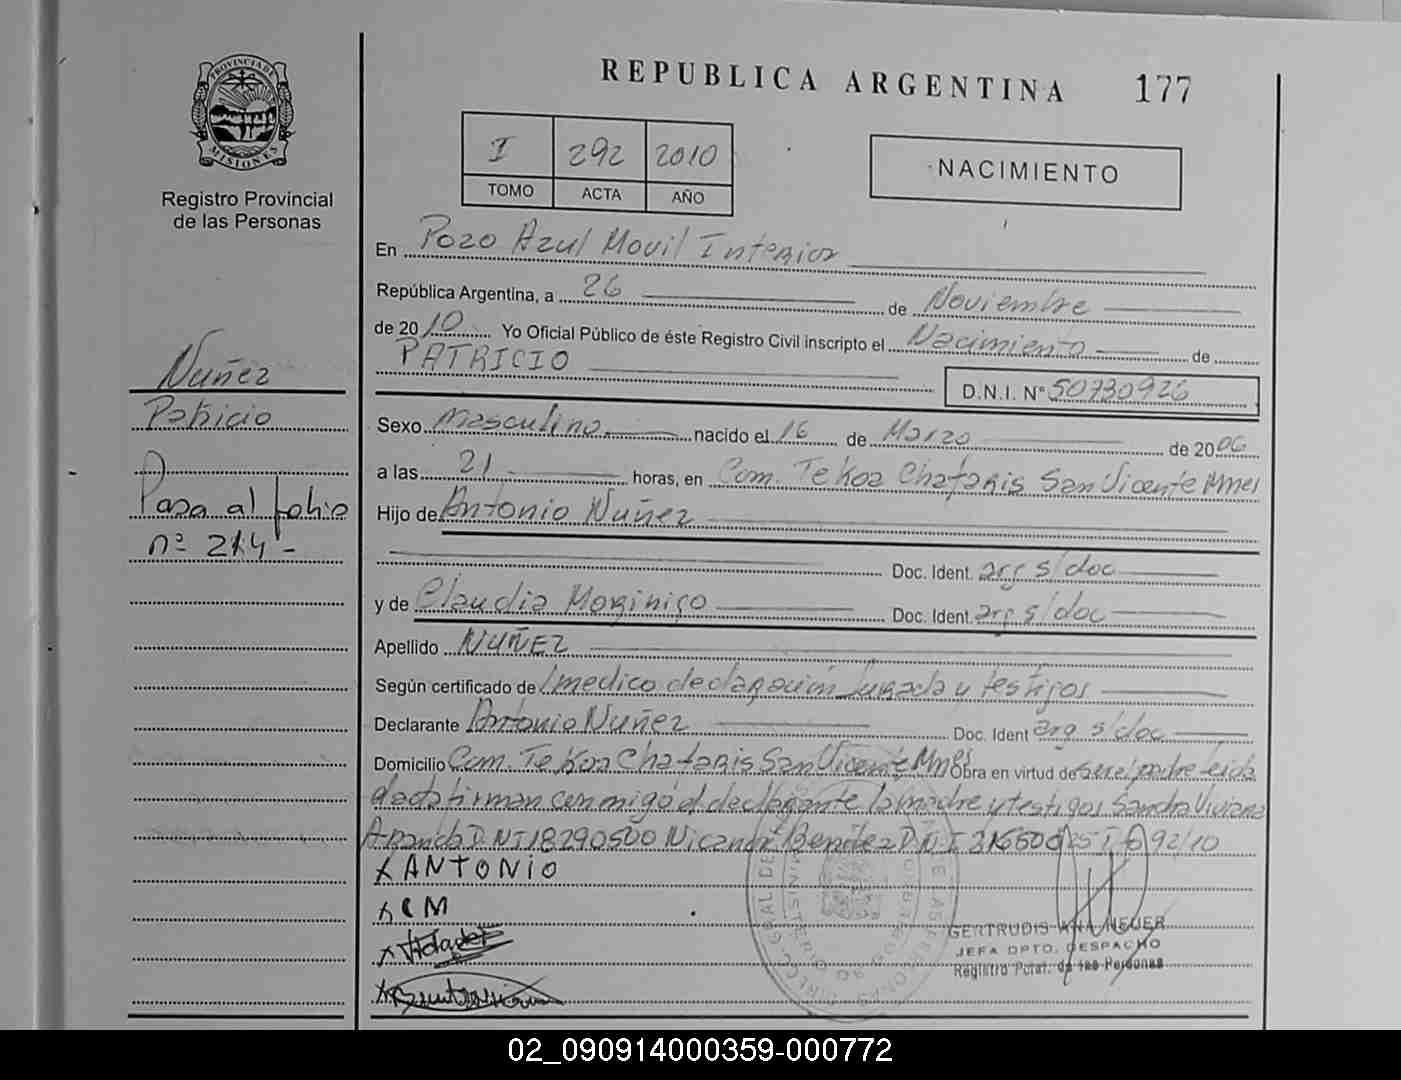 REPUBLICA ARGENTINA 177
PROVINCIA DE MISIONES
Registro Provincial
de las Personas
I 292 2010
TOMO ACTA AÑO
NACIMIENTO
En Pozo Azul Movil Interior
República Argentina, a 26 de Noviembre
de 2010 Yo Oficial Público de éste Registro Civil inscripto el Nacimiento de
PATRICIO
D.N.I. Nº 50730926
Nuñez
Patricio
Pasa al folio
nº 214 -
Sexo Masculino nacido el 16 de Marzo de 2006
a las 21 horas, en Com. Tekoa Chafaris San Vicente Mnes
Hijo de Antonio Nuñez
Doc. Ident. arg s/doc
y de Claudia Morinigo Doc. Ident. arg s/doc
Apellido NUÑEZ
Según certificado de medico declaracion Jurada y testigos
Declarante Antonio Nuñez Doc. Ident arg s/doc
Domicilio Com. Tekoa Chafaris San Vicente Mnes Obra en virtud de ser el padre leida
el acta firman conmigo el declarante la madre y testigos Sandra Viviana
DNI 18290500 Nicanor Benitez D.N.I
X ANTONIO
X CM
X
X
GERTRUDIS ANA HEUER
JEFA DPTO. DESPACHO
Registro Pcial. de las Personas
02_090914000359-000772